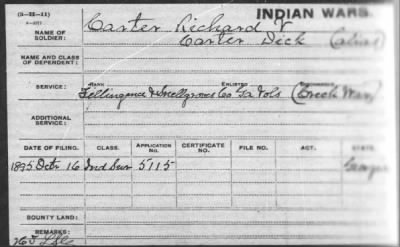 (3-22-11)
INDIAN WARS.
NAME OF SOLDIER:
Carter Richard
Carter Dick (alias)
NAME AND CLASS OF DEPENDENT:
SERVICE:
RANK
ENLISTED
Co Ga Vols (Creek War)
ADDITIONAL SERVICE:
DATE OF FILING. CLASS. APPLICATION NO. CERTIFICATE NO. FILE NO. ACT. STATE
1895 Oct 16 Ind Sur 5115 Georgia
BOUNTY LAND:
REMARKS: